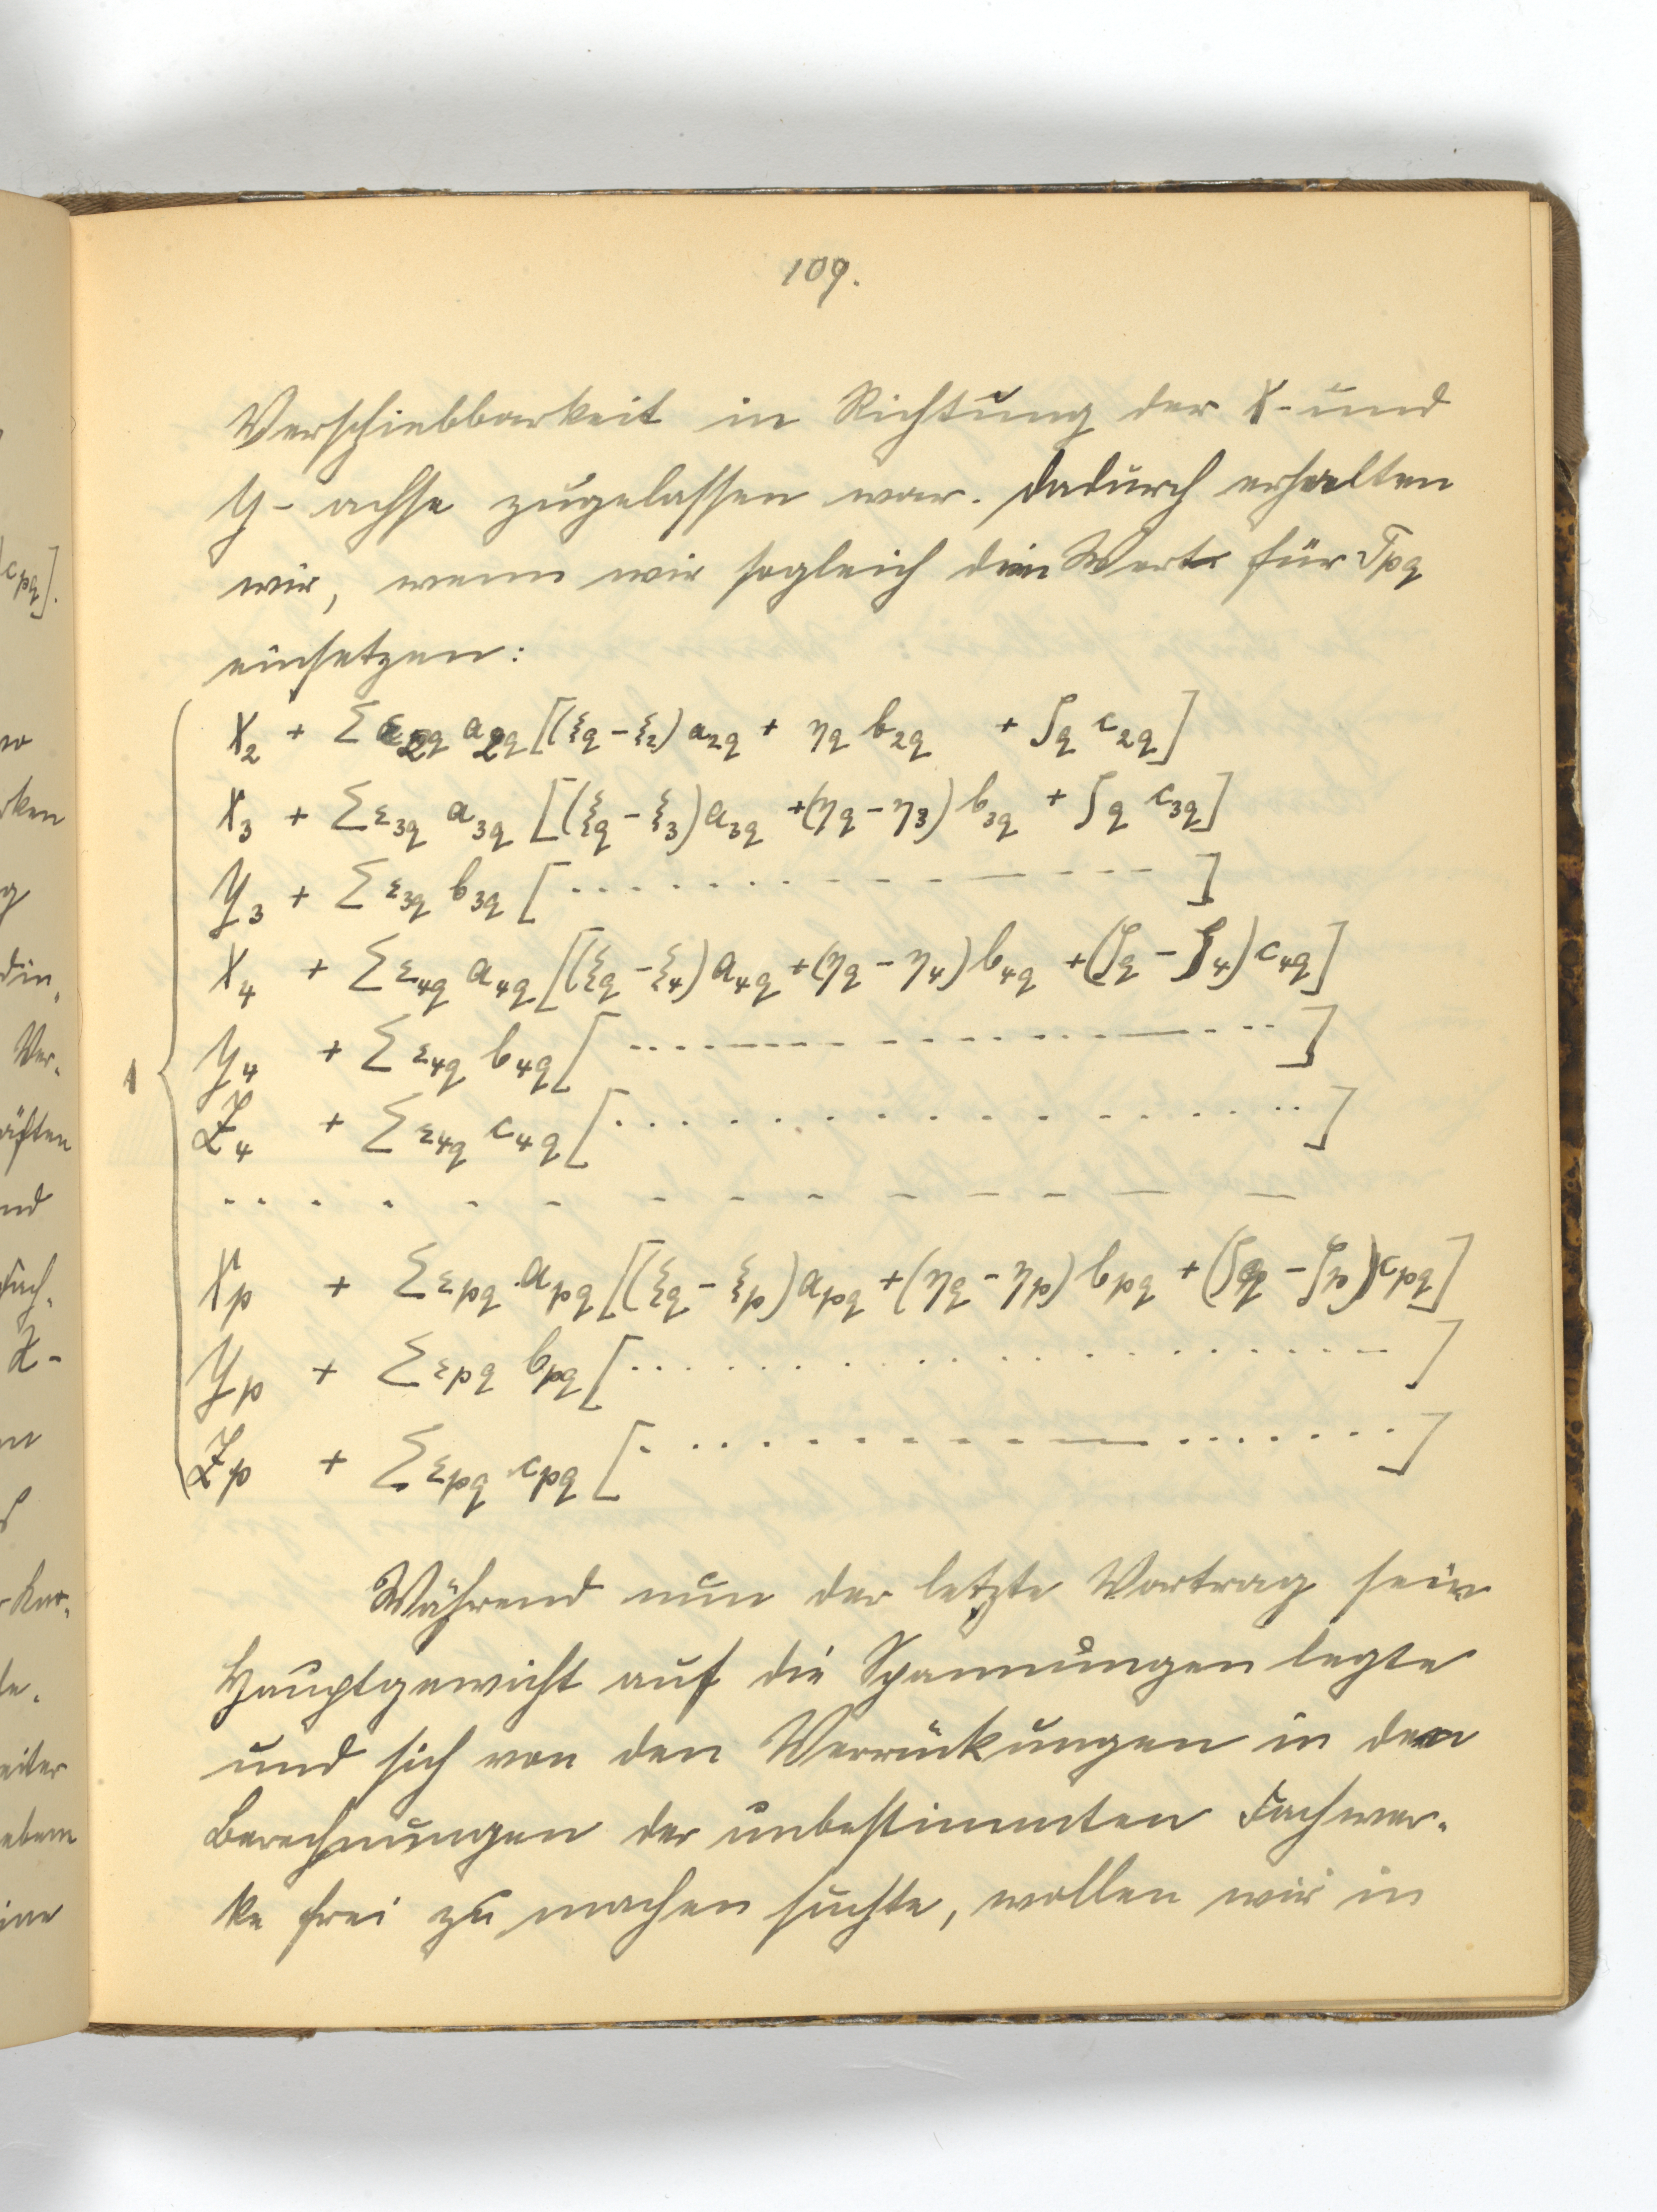 109.
Verschiebbarkeit in Richtung der X- und
Y- achse zugelassen war. Dadurch erhalten
wir, wenn wir sogleich den Wert für Tpq
einsetzen:
X₂ + Σ ε₂q a₂q [(ξq - ξ₂) a₂q + ηq b₂q + ζq c₂q]
X₃ + Σ ε₃q a₃q [(ξq - ξ₃) a₃q + (ηq - η₃) b₃q + ζq c₃q]
Y₃ + Σ ε₃q b₃q [ . . . . . . . . . . ]
X₄ + Σ ε₄q a₄q [(ξq - ξ₄) a₄q + (ηq - η₄) b₄q + (ζq - ζ₄) c₄q]
Y₄ + Σ ε₄q b₄q [ . . . . . . . . . . ]
1
Z₄ + Σ ε₄q c₄q [ . . . . . . . . . . ]
. . . . . . . . . . . . . . .
Xp + Σ εpq apq [(ξq - ξp) apq + (ηq - ηp) bpq + (ζq - ζp) cpq]
Yp + Σ εpq bpq [ . . . . . . . . . . ]
Zp + Σ εpq cpq [ . . . . . . . . . . ]
Während nun der letzte Vortrag sein
Hauptgewicht auf die Spannungen legte
und sich von den Verrückungen in den
Berechnungen der unbestimmten Fachwer-
ke frei zu machen suchte, wollen wir in